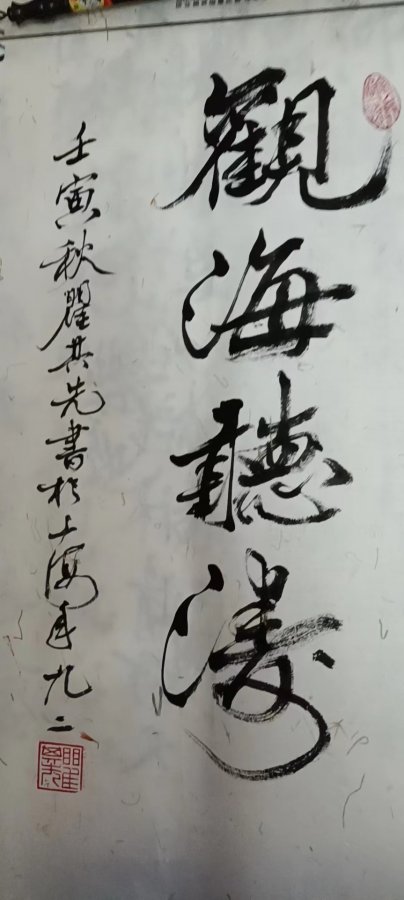 觀海聽濤
壬寅秋瞿共先書於上海年九二